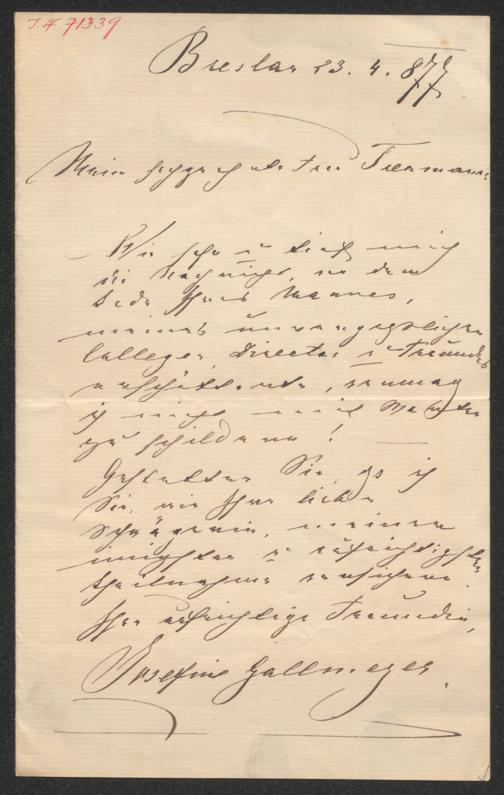 J.N. 71339
Breslau 23. 4. 877
Meine hochgeehrte Frau Treumann!
Wie sehr u tief mich
die Nachricht, von dem
Tode Ihres Mannes,
meines unvergeßlichen
Collegen, Director u Freundes
erschütterte, vermag
ich nicht mit Worten
zu schildern! —
Gestatten Sie, daß ich
Sie, wie Ihre liebe
Schwägerin, meiner
innigsten u aufrichtigsten
Theilnahme versichere.
Ihre aufrichtige Freundin,
Josefine Gallmeyer.